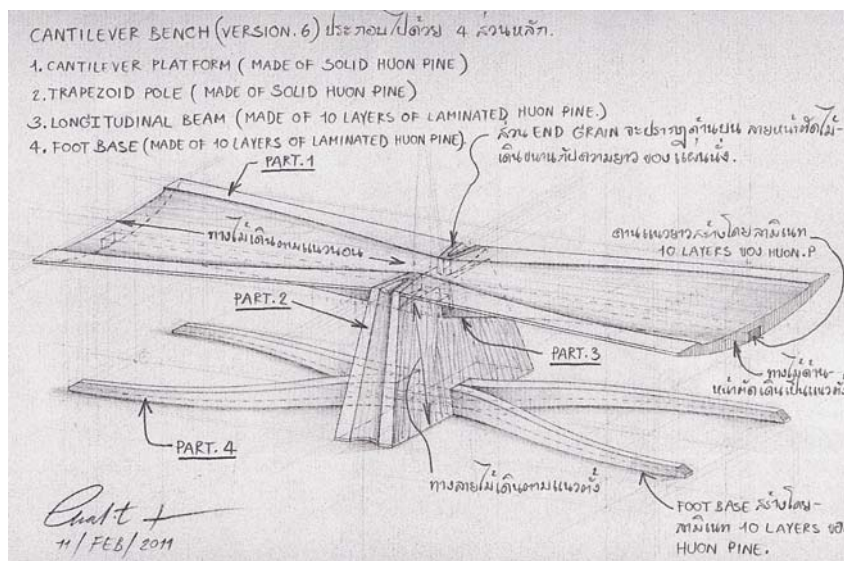 CANTILEVER BENCH (VERSION. 6) ประกอบไปด้วย 4 ส่วนหลัก.
1. CANTILEVER PLATFORM ( MADE OF SOLID HUON PINE )
2. TRAPEZOID POLE ( MADE OF SOLID HUON PINE )
3. LONGITUDINAL BEAM (MADE OF 10 LAYERS OF LAMINATED HUON PINE.)
4. FOOT BASE (MADE OF 10 LAYERS OF LAMINATED HUON PINE)
ส่วน END GRAIN จะปรากฏด้านบน ลายหน้าตัดไม้-
เดินขนานกับความยาว ของ แผ่นนั่ง.
PART.1
ทางไม้เดินตามแนวนอน
คานแนวยาวสร้างโดยลามิเนท
10 LAYERS ของ HUON.P
PART.2
PART.3
ทางไม้ด้าน-
หน้าตัดเดินเป็นแนวตั้ง
PART.4
ทางลายไม้เดินตามแนวตั้ง
FOOT BASE สร้างโดย-
ลามิเนท 10 LAYERS ของ
HUON PINE.
11/FEB/2011